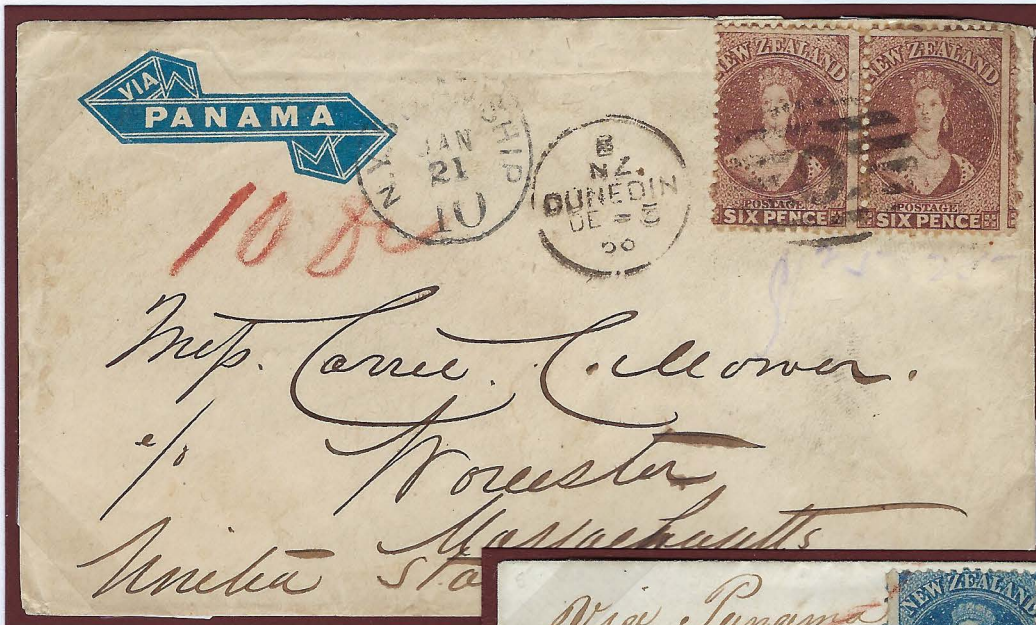 VIA
PANAMA
N.Y. STEAMSHIP
JAN
21
10
NZ.
DUNEDIN
DE
NEW ZEALAND
POSTAGE
SIX PENCE
NEW ZEALAND
POSTAGE
SIX PENCE
10 Dc
Miss. Carrie. C. Mower.
c/o Worcester
Massachusetts
United Sta
Via Panama
NEW ZEALAND